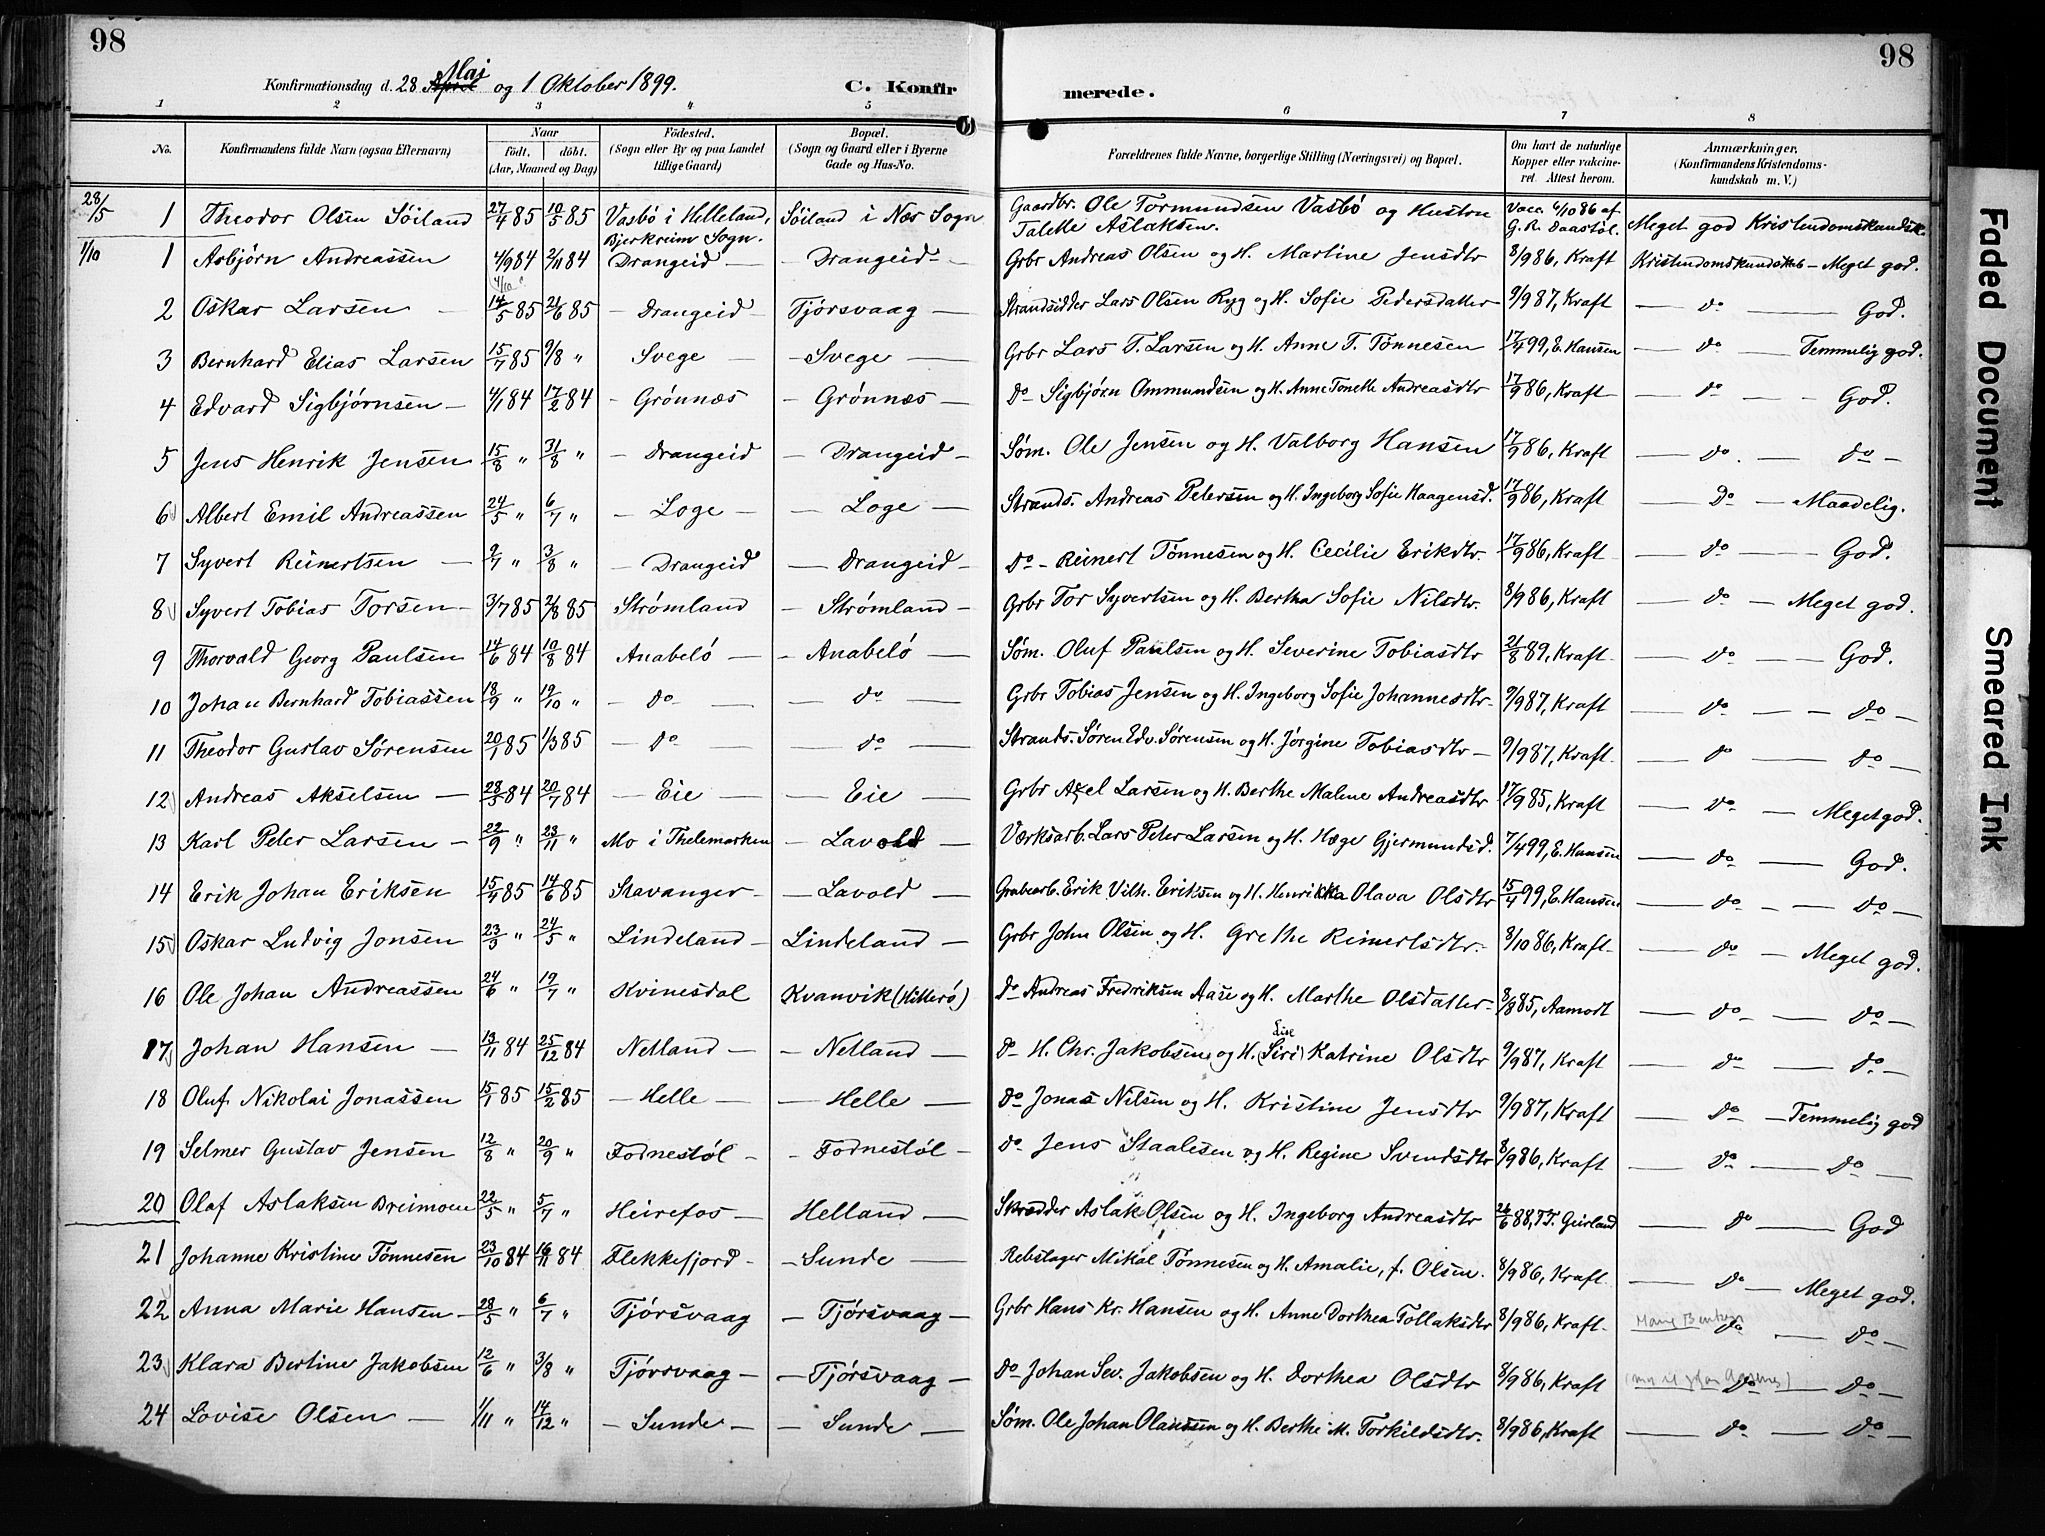 98
98
Konfirmationsdag d. 28 April Mai og 1 Oktober 1899.
C. Konfir merede.
1 2 3 4 5 6 7 8
No. Konfirmandens fulde Navn (ogsaa Efternavn) Naar født. døbt. (Aar, Maaned og Dag) Fødested. (Sogn eller By og paa Landet tillige Gaard) Bopæl. (Sogn og Gaard eller i Byerne Gade og Hus-No. Forældrenes fulde Navne, borgerlige Stilling (Næringsvei) og Bopæl. Om havt de naturlige Kopper eller vakcineret. Attest herom. Anmærkninger, (Konfirmandens Kristendomskundskab m. V.)
28/5 1 Theodor Olsen Söiland 27/4 85 10/5 85 Vasbö i Helleland, Bjerkreim Sogn. Söiland i Nær Sogn Gaardbr. Ole Tormundsen Vasbö og Hustru Taleke Aslaksen. Vacc. 6/10 86 af G. R. Daastöl. Meget god Kristendomskundsk.
1/10 1 Asbjörn Andreassen 4/9 84 2/11 84 Drangeid — Drangeid — Grbr Andreas Olsen og H. Martine Jensdtr 8/9 86, Kraft Kristendomskundskab — Meget god.
4/10
2 Oskar Larsen — 14/5 85 21/6 85 — Drangeid — Tjörsvaag — Strandsidder Lars Olsen Ryg og H. Sofie Pedersdatter 9/9 87, Kraft — do — God.
3 Bernhard Elias Larsen 15/7 85 9/8 " — Svege — — Svege — Grbr Lars T. Larsen og H. Anne T. Tönnesen 17/4 99, E. Hansen — do — Temmelig god.
4 Edvard Sigbjörnsen — 4/1 84 17/2 84 — Grönnæs — Grönnæs — do Sigbjörn Ommundsen og H. Anne Tonette Andreasdtr 17/9 86, Kraft — do — God.
5 Jens Henrik Jensen 15/8 " 31/8 " — Drangeid — Drangeid — Söm. Ole Jensen og H. Valborg Hansen 17/9 86, Kraft — do — do —
6 Albert Emil Andreassen 24/5 " 6/7 " — Loge — — Loge — Strands. Andreas Petersen og H. Ingeborg Sofie Haagensd. 17/9 86, Kraft — Do — Maadelig.
7 Syvert Reinertsen — 2/7 " 3/8 " — Drangeid — Drangeid — Do — Reinert Tönnesen og H. Cecilie Erikdtr. 17/9 86, Kraft — do — God.
8 Syvert Tobias Torsen — 3/7 85 2/8 85 — Strömland — Strömland — Grbr Tor Syvertsen og H. Bertha Sofie Nilsdtr. 8/9 86, Kraft — do — Meget god.
9 Thorvald Georg Paulsen 14/6 84 10/8 84 Anabelö — — Anabelö — Söm. Oluf Paulsen og H. Severine Tobiasdtr 2/8 89, Kraft — do — God.
10 Johan Bernhard Tobiassen 18/9 " 19/10 " — do — — do — Grbr Tobias Jensen og H. Ingeborg Sofie Johannesdtr 9/9 87, Kraft — do — do —
11 Theodor Gustav Sörensen 20/1 85 1/3 85 — do — — do — Strands. Sören Edv. Sörensen og H. Jörgine Tobiasdtr — 9/9 87, Kraft — do — do —
12 Andreas Akselsen — 28/5 84 20/7 84 — Eie — — Eie — Grbr Axel Larsen og H. Berthe Malene Andreasdtr 17/9 85, Kraft — do — Meget god.
13 Karl Peter Larsen — 22/9 " 23/11 " Mo i Thelemarken — Lavold Værksarb. Lars Peter Larsen og H. Hæge Gjermundsd. 7/4 99, E. Hansen — do — God.
14 Erik Johan Eriksen 15/4 85 14/6 85 Stavanger — — Lavold — Grubearb. Erik Vilh. Eriksen og H. Henrikka Olava Olsdtr 15/4 99, E. Hansen — do — do —
15 Oskar Ludvig Jonsen 23/3 " 24/5 " Lindeland — Lindeland — Grbr John Olsen og H. Grethe Reinertsdtr. 8/10 86, Kraft — do — Meget god.
16 Ole Johan Andreassen 24/6 " 19/7 " Kvinesdal Kvanvik (Hitterö) Do Andreas Fredriksen Aase og H. Marthe Olsdatter 8/8 85, Aamodt — do — do —
17 Johan Hansen — 13/11 84 25/12 84 Netland — — Netland — do H. Chr. Jakobsen og H. (Siri) Lise Katrine Olsdtr 9/9 87, Kraft — do — do —
18 Oluf Nikolai Jonassen 15/1 85 15/2 85 — Helle — — Helle — Do Jonas Nilsen og H. Kristine Jensdtr 9/9 87, Kraft — do — Temmelig god
19 Selmer Gustav Jensen 12/8 " 20/9 " Fodnestöl — Fodnestöl — do Jens Staalesen og H. Regine Svendsdtr 8/9 86, Kraft — do — do —
20 Olaf Aslaksen Breimoen 22/5 " 5/7 " Heirefos — Helland — Skrædder Aslak Olsen og H. Ingeborg Andreasdtr 26/6 88, T.T. Geirland — do — God
21 Johanne Kristine Tönnesen 23/10 84 16/11 84 Flekkefjord — — Sunde — Rebslager Mikal Tönnesen og H. Amalie, f. Olsen. 8/9 86, Kraft — do — Meget god.
22 Anna Marie Hansen — 28/5 " 6/7 " Tjörsvaag — Tjörsvaag — Grbr Hans Kr. Hansen og H. Anne Dorthea Tollaksdtr 8/9 86, Kraft. do — do —
23 Klara Bertine Jakobsen 12/6 " 3/8 " Tjörsvaag — — Tjörsvaag — do Johan Sev. Jakobsen og H. Dorthea Olsdtr 8/9 86, Kraft do — do —
24 Lovise Olsen — 1/11 " 14/12 " — Sunde — — Sunde — Söm. Ole Johan Olaussen og H. Berthe M. Torkildsdtr. 8/9 86, Kraft — do — do —
Faded Document
Smeared Ink